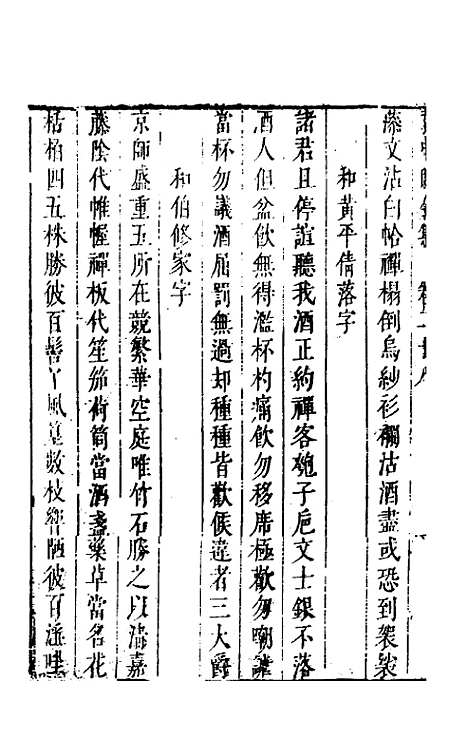 藤文沾白帢禪榻倒烏紗衫襴沽酒盡或恐到袈裟
和黃平倩落字
諸君且停諠聽我酒正約禪客匏子巵文士銀不落
酒人但盆飲無得濫杯杓痛飲勿移席極歡勿嘲謔
當杯勿議酒屈罰無過却種種皆歡候違者三大爵
和伯修家字
京師盛重五所在競繁華空庭唯竹石勝之以清嘉
藤陰代帷幄禪板代笙笳荷筒當酒盞藥草當名花
枯柏四五株勝彼百髻丫風篁數枝響陋彼百淫哇